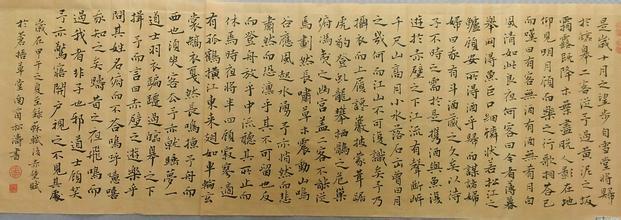 是歲十月之望步自雪堂將歸
於臨皋二客從予過黃泥之坂
霜露既降木葉盡脫人影在地
仰見明月顧而樂之行歌相答已
而嘆曰有客無酒有酒無肴月白
風清如此良夜何客曰今者薄暮
舉網得魚巨口細鱗狀若松江之
鱸顧安所得酒乎歸而謀諸婦
婦曰我有斗酒藏之久矣以待
子不時之需於是攜酒與魚復
遊於赤壁之下江流有聲斷岸
千尺山高月小水落石出曾日月
之幾何而江山不可復識矣予乃
攝衣而上履巉巖披蒙茸踞
虎豹登虬龍攀棲鶻之危巢
俯馮夷之幽宮蓋二客不能從
焉劃然長嘯草木震動山鳴
谷應風起水湧予亦悄然而悲
肅然而恐凜乎其不可留也反
而登舟放乎中流聽其所止而
休焉時夜將半四顧寂寥適
有孤鶴橫江東來翅如車輪玄
裳縞衣戛然長鳴掠予舟而
西也須臾客去予亦就睡夢一
道士羽衣蹁躚過臨皋之下
揖予而言曰赤壁之遊樂乎
問其姓名俯而不答嗚呼噫嘻
我知之矣疇昔之夜飛鳴而
過我者非子也耶道士顧笑
予亦驚寤開戶視之不見其處
歲在甲午之夏至錄蘇軾後赤壁賦
於蒼梧草堂南窗松濤書